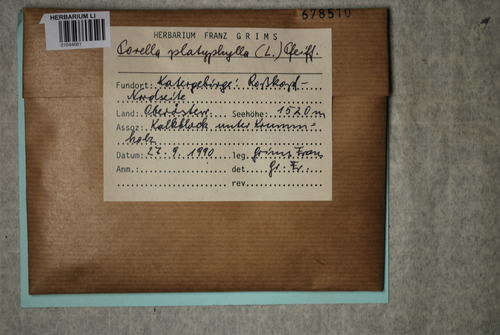 678510
HERBARIUM LI
HERBARIUM FRANZ GRIMS
Porella platyphylla (L.) Pfeiff.
Fundort: Katergebirge: Roßkopf-
Nordseite
Land: Oberösterr. Seehöhe: 1520 m
Assoz: Kalkblock unter Krumm-
holz
Datum: 27. 9. 1990 leg. Grims Franz
Anm.: det. Gr. Fr.
rev.